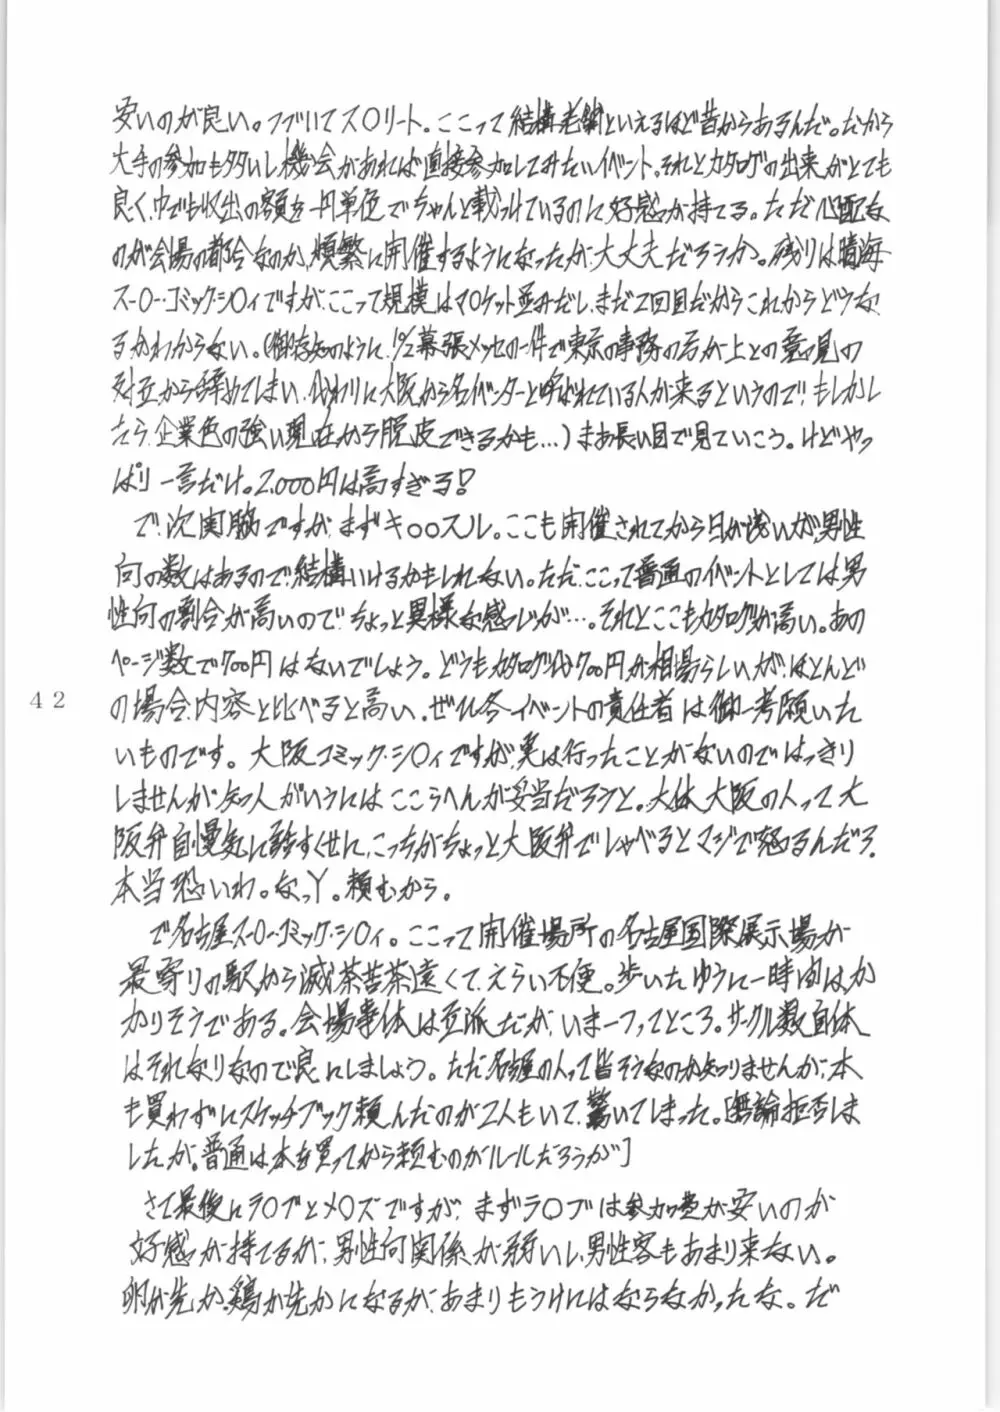 安いのが良い。つづいてス〇リート。ここって結構老舗といえるほど昔からあるんだ。だから
大手の参加も多いし機会があれば直接参加してみたいイベント。それとカタログの出来がとても
良く、中でも収出の額を一円単色でちゃんと載っけているのに好感が持てる。ただ心配な
のが会場の都合なのか、頻繁に開催するようになったが、大丈夫だろうか。残りは晴海
ス-〇-・コミック・シ〇ィですが、ここって規模はマ〇ケット並みだし、まだ2回目だからこれからどうな
るかわからない。(御存知のように、1%幕張メッセの一件で東京の事務の方が上との意見の
対立から辞めてしまい、代わりに大阪から名イベンターと呼ばれている人が来るというので!もしかし
たら、企業色の強い現在から脱皮できるかも…)まあ長い目で見ていこう。けどやっ
ぱり一言だけ。2,000円は高すぎる!
で、次実脇ですが、まずキ〇〇スル。ここも開催されてから日が浅いが、男性
向の数はあるので、結構いけるかもしれない。ただ、ここって普通のイベントとしては男
性向の割合が高いので、ちょっと異様な感じが…。それとここもカタログが高い。あの
ページ数で700円はないでしょう。どうもカタログ代700円が相場らしいが、ほとんど
の場合、内容と比べると高い。ぜひ各イベントの責任者は御一考願いた
いものです。大阪コミック・シ〇ィですが、実は行ったことがないのではっきり
しませんが、知人がいうにはここらへんが妥当だろうと。大体大阪の人って大
阪弁自慢気に話すくせに、こっちがちょっと大阪弁でしゃべるとマジで怒るんだろ。
本当恐いわ。なっY。頼むから。
で名古屋ス-〇-・コミック・シ〇ィ。ここって開催場所の名古屋国際展示場が
最寄りの駅から滅茶苦茶遠くて、えらい不便。歩いたらゆうに一時間はか
かりそうである。会場事体は立派だが、いま一つってところ。サークル数自体
はそれなりなので良にしましょう。ただ名古屋の人って皆そうなのか知りませんが、本
も買わずにスケッチブック頼んだのが2人もいて、驚いてしまった。[無論拒否しま
したが。普通は本を買ってから頼むのがルールだろうが]
さて最後にラ〇ブとメ〇ズですが、まずラ〇ブは参加費が安いのが
好感が持てるが、男性向関係が弱いし、男性客もあまり来ない。
卵が先か、鶏が先かになるが、あまりもうけにはならなかったな。だ
42